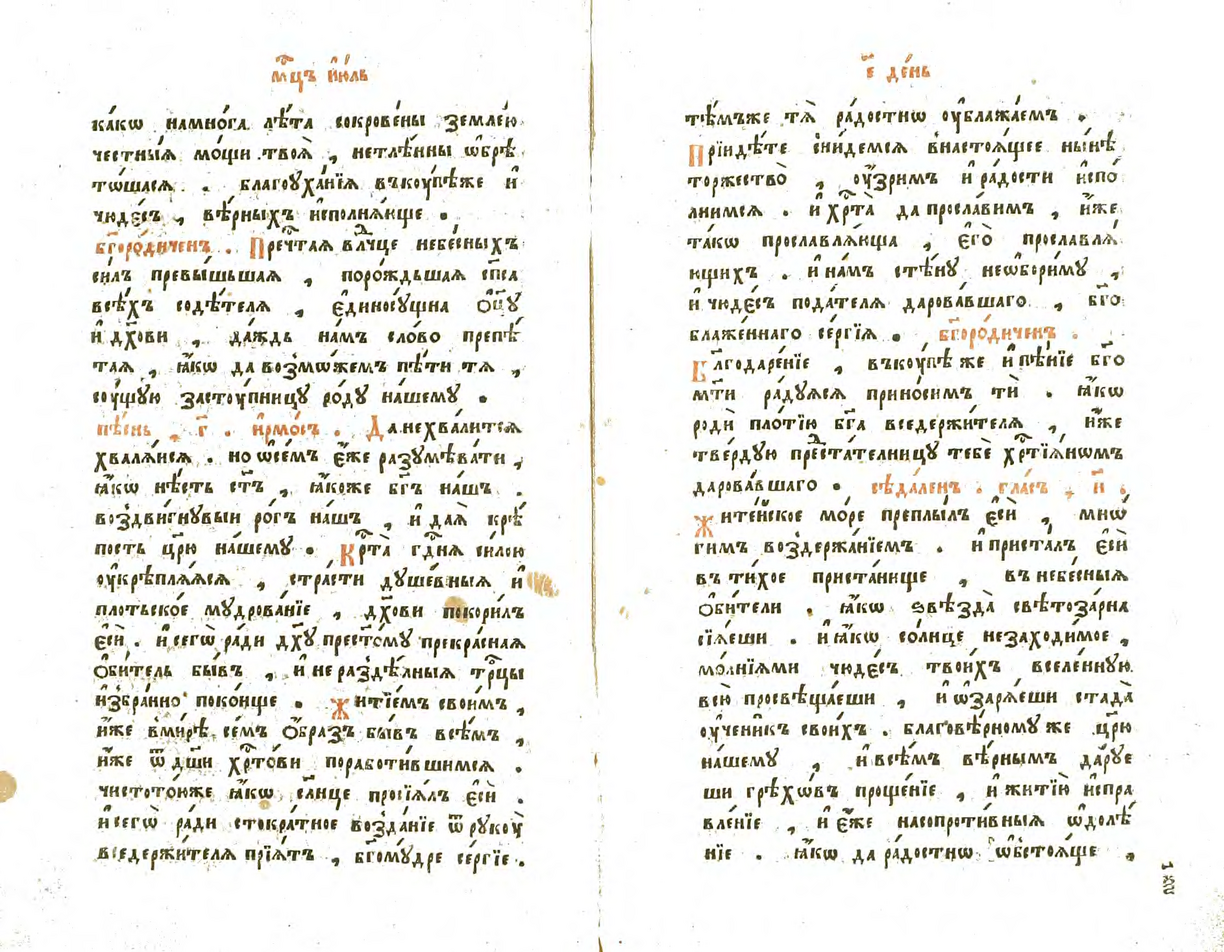 мⷭ҇цъ і҆ю́ль
ка́кѡ намно́га лѣ́та сокрове́ны землею
честны́ѧ мо́щи твоѧ̀ , нетлѣ́нны ѡ҆брѣ́
то́шасѧ . благоуха́нїѧ въкоупѣ́же и҆
чюде́съ , вѣ́рныхъ и҆сполнѧ́юще .
бг҃оро́диченъ . Пречⷭ҇таѧ влⷣчце небе́сныхъ
си́лъ превы́шьшаѧ , поро́ждьшаѧ сп҃са
всѣ́хъ содѣ́телѧ , є҆диносꙋ́щна ѻ҆ц҃ꙋ
и҆ дх҃ови , да́ждь на́мъ сло́во препѣ́
таѧ , ꙗ҆́кѡ да возмо́жемъ пѣ́ти тѧ ,
соу́щꙋю засто́упницꙋ ро́дꙋ на́шемꙋ .
пѣ́снь , г҃ . і҆рмо́съ . Да нехва́литсѧ
хвалѧ́исѧ . но ѡ҆се́мъ є҆́же разꙋмѣва́ти ,
ꙗ҆́кѡ нѣ́сть ст҃ъ , ꙗ҆́коже бг҃ъ на́шъ .
воздви́гнꙋвыи ро́гъ на́шъ , и҆ даѧ̀ крѣ́
пость цр҃ю на́шемꙋ . Крⷭ҇та̀ гдⷭ҇нѧ си́лою
оу҆крѣплѧ́ѧсѧ , стра́сти дꙋше́вныѧ и҆
пло́тьское мꙋдрова́нїе , дх҃ови покори́лъ
є҆сѝ . и҆ сегѡ̀ ра́ди дх҃ꙋ прест҃о́мꙋ прекра́снаѧ
ѻ҆би́тель бы́въ , и҆ не раздѣ́лныѧ трⷪ҇цы
и҆збра́нно поко́ище . Житїе́мъ свои́мъ ,
и҆́же вми́рѣ се́мъ ѻ҆́бразъ бы́въ всѣ́мъ ,
и҆́же ѿ дш҃и хрⷭ҇то́ви порабо́тившимсѧ .
чистото́юже ꙗ҆́кѡ сл҃нце просїѧ́лъ є҆сѝ .
и҆ сегѡ̀ ра́ди стокра́тное возда́нїе ѿ рꙋкоу̀
вседержи́телѧ прїѧ́тъ , бг҃омꙋ́дре се́ргїе .
е҃ де́нь
тѣ́мъже тѧ̀ ра́достнѡ оу҆блажа́емъ .
Прїидѣ́те сни́демсѧ внастоѧ́щее ны́нѣ
торжество̀ , оу҆́зримъ и҆ ра́дости и҆спо́
лнимсѧ . и҆ хрⷭ҇та̀ да просла́вимъ , и҆́же
та́кѡ прославлѧ́юща , є҆го̀ прославлѧ́
ющихъ . и҆ на́мъ стѣ́нꙋ неѡбори́мꙋ ,
и҆ чюде́съ пода́телѧ дарова́вшаго , бг҃о
блаже́ннаго се́ргїѧ . бг҃оро́диченъ .
Благодаре́нїе , въкоу́пѣ же и҆ пѣ́нїе бг҃о
мт҃и ра́дꙋйсѧ прино́симъ тѝ . ꙗ҆́кѡ
роди пло́тїю бг҃а вседержи́телѧ , и҆́же
тве́рдꙋю предста́телницꙋ тебѐ хрⷭ҇тїѧ́нѡмъ
дарова́вшаго . сѣда́ленъ . гла́съ , и҃ .
Жите́йское мо́ре преплы́лъ є҆сѝ , мно́
гимъ воздержа́нїемъ . и҆ приста́лъ є҆сѝ
въ ти́хое приста́нище , въ небе́сныѧ
ѻ҆би́тели . ꙗ҆́кѡ ѕвѣзда̀ свѣтоза́рна
сїѧ́еши . и҆ ꙗ҆́кѡ со́лнце незаходи́мое ,
мо́лнїѧми чюде́съ твои́хъ вселе́ннꙋю
всю̀ просвѣща́еши , и҆ ѡ҆зарѧ́еши стада̀
оу҆чени́къ свои́хъ . благовѣ́рномꙋ же цр҃ю
на́шемꙋ , и҆ всѣ́мъ вѣ́рнымъ да́рꙋе
ши грѣхѡ́въ проще́нїе , и҆ житїю̀ и҆спра
вле́нїе , и҆ є҆́же насопроти́вныѧ ѡ҆долѣ́
нїе . ꙗ҆́кѡ да ра́достнѡ ѡ҆бстоѧ́ще ,